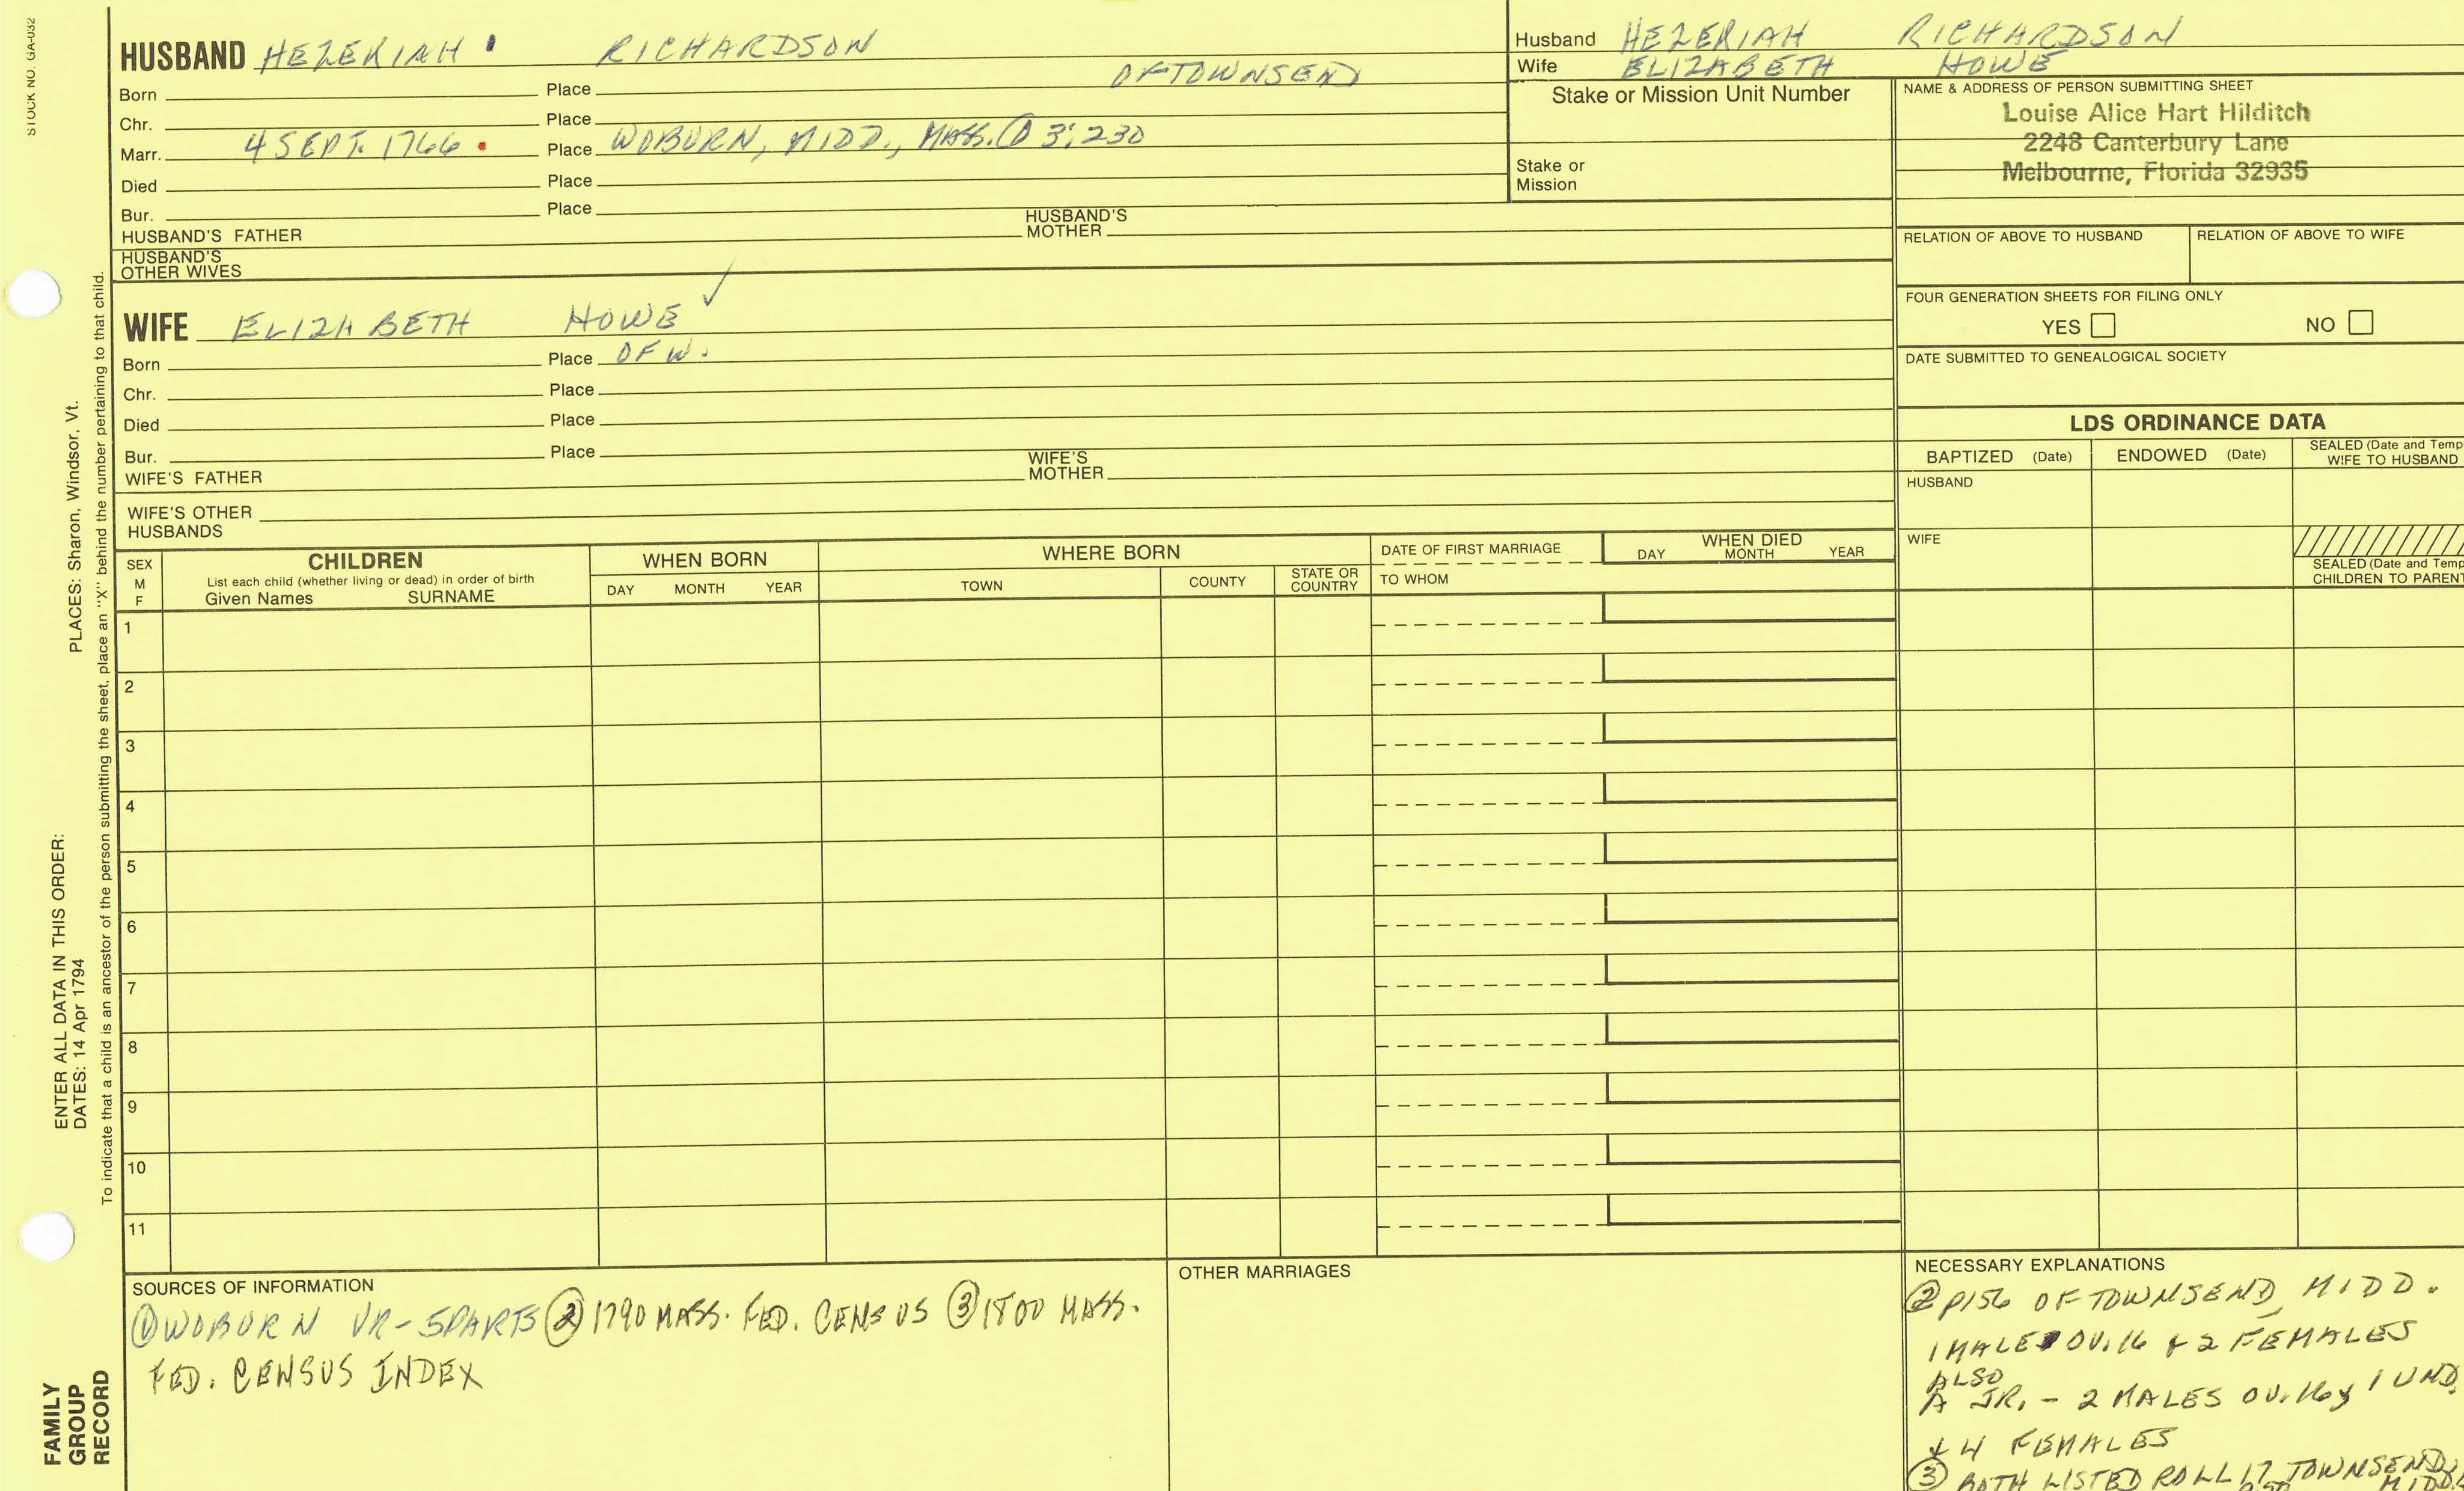 STOCK NO. GA-032
HUSBAND HEZEKIAH RICHARDSON
OF TOWNSEND
Born Place
Chr. Place
Marr. 4 SEPT. 1766 Place WOBURN, MIDD., MASS. ① 3:230
Died Place
Bur. Place
HUSBAND'S FATHER HUSBAND'S MOTHER
HUSBAND'S OTHER WIVES
WIFE ELIZABETH HOWE ✓
Born Place OF W.
Chr. Place
Died Place
Bur. Place
WIFE'S FATHER WIFE'S MOTHER
WIFE'S OTHER HUSBANDS
Husband HEZEKIAH RICHARDSON
Wife ELIZABETH HOWE
Stake or Mission Unit Number
Stake or Mission
NAME & ADDRESS OF PERSON SUBMITTING SHEET
Louise Alice Hart Hilditch
2248 Canterbury Lane
Melbourne, Florida 32935
RELATION OF ABOVE TO HUSBAND RELATION OF ABOVE TO WIFE
FOUR GENERATION SHEETS FOR FILING ONLY
YES NO
DATE SUBMITTED TO GENEALOGICAL SOCIETY
LDS ORDINANCE DATA
BAPTIZED (Date) ENDOWED (Date) SEALED (Date and Temp
WIFE TO HUSBAND
HUSBAND
WIFE
SEALED (Date and Temp
CHILDREN TO PARENT
SEX
M
F
CHILDREN
List each child (whether living or dead) in order of birth
Given Names SURNAME
WHEN BORN
DAY MONTH YEAR
WHERE BORN
TOWN COUNTY STATE OR COUNTRY
DATE OF FIRST MARRIAGE
TO WHOM
WHEN DIED
DAY MONTH YEAR
1
2
3
4
5
6
7
8
9
10
11
SOURCES OF INFORMATION
① WOBURN VR-5PARTS ② 1790 MASS. FED. CENSUS ③ 1800 MASS.
FED. CENSUS INDEX
OTHER MARRIAGES
NECESSARY EXPLANATIONS
② P156 OF TOWNSEND, MIDD.
1 MALE OV. 16 & 2 FEMALES
ALSO
A JR. - 2 MALES OV. 16 & 1 UND.
& 4 FEMALES
③ BOTH LISTED ROLL 17 TOWNSEND,
PLACES: Sharon, Windsor, Vt.
ENTER ALL DATA IN THIS ORDER:
DATES: 14 Apr 1794
To indicate that a child is an ancestor of the person submitting the sheet, place an "X" behind the number pertaining to that child.
FAMILY
GROUP
RECORD